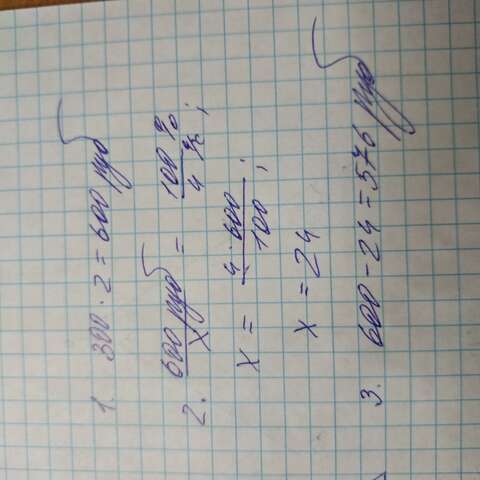 1. 300 · 2 = 600 руб
2. 600 руб / x = 100 % / 4 % ;
x = 4 · 600 / 100 ;
x = 24
3. 600 - 24 = 576 руб